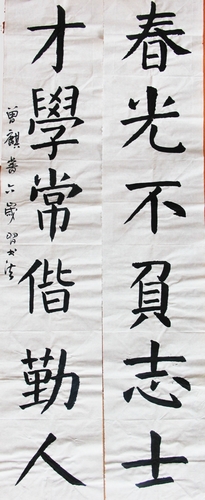 春光不負志士
才學常偕勤人
曾麒書六歲習書法